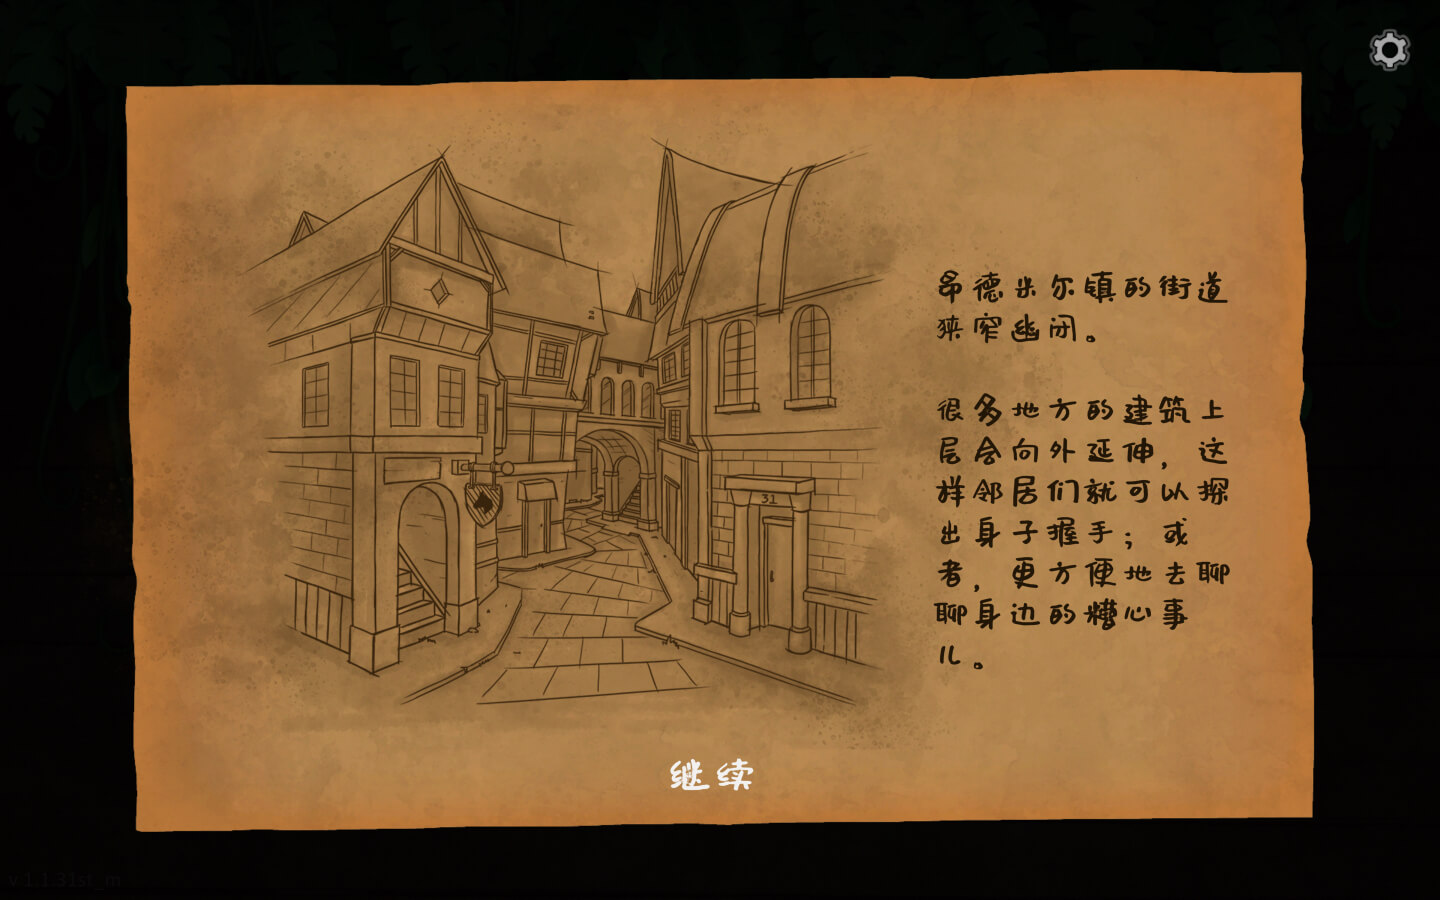 昂德米尔镇的街道
狭窄幽闭。
很多地方的建筑上
层会向外延伸，这
样邻居们就可以探
出身子握手；或
者，更方便地去聊
聊身边的糟心事
儿。
31
继续
v 1.1.31st_m